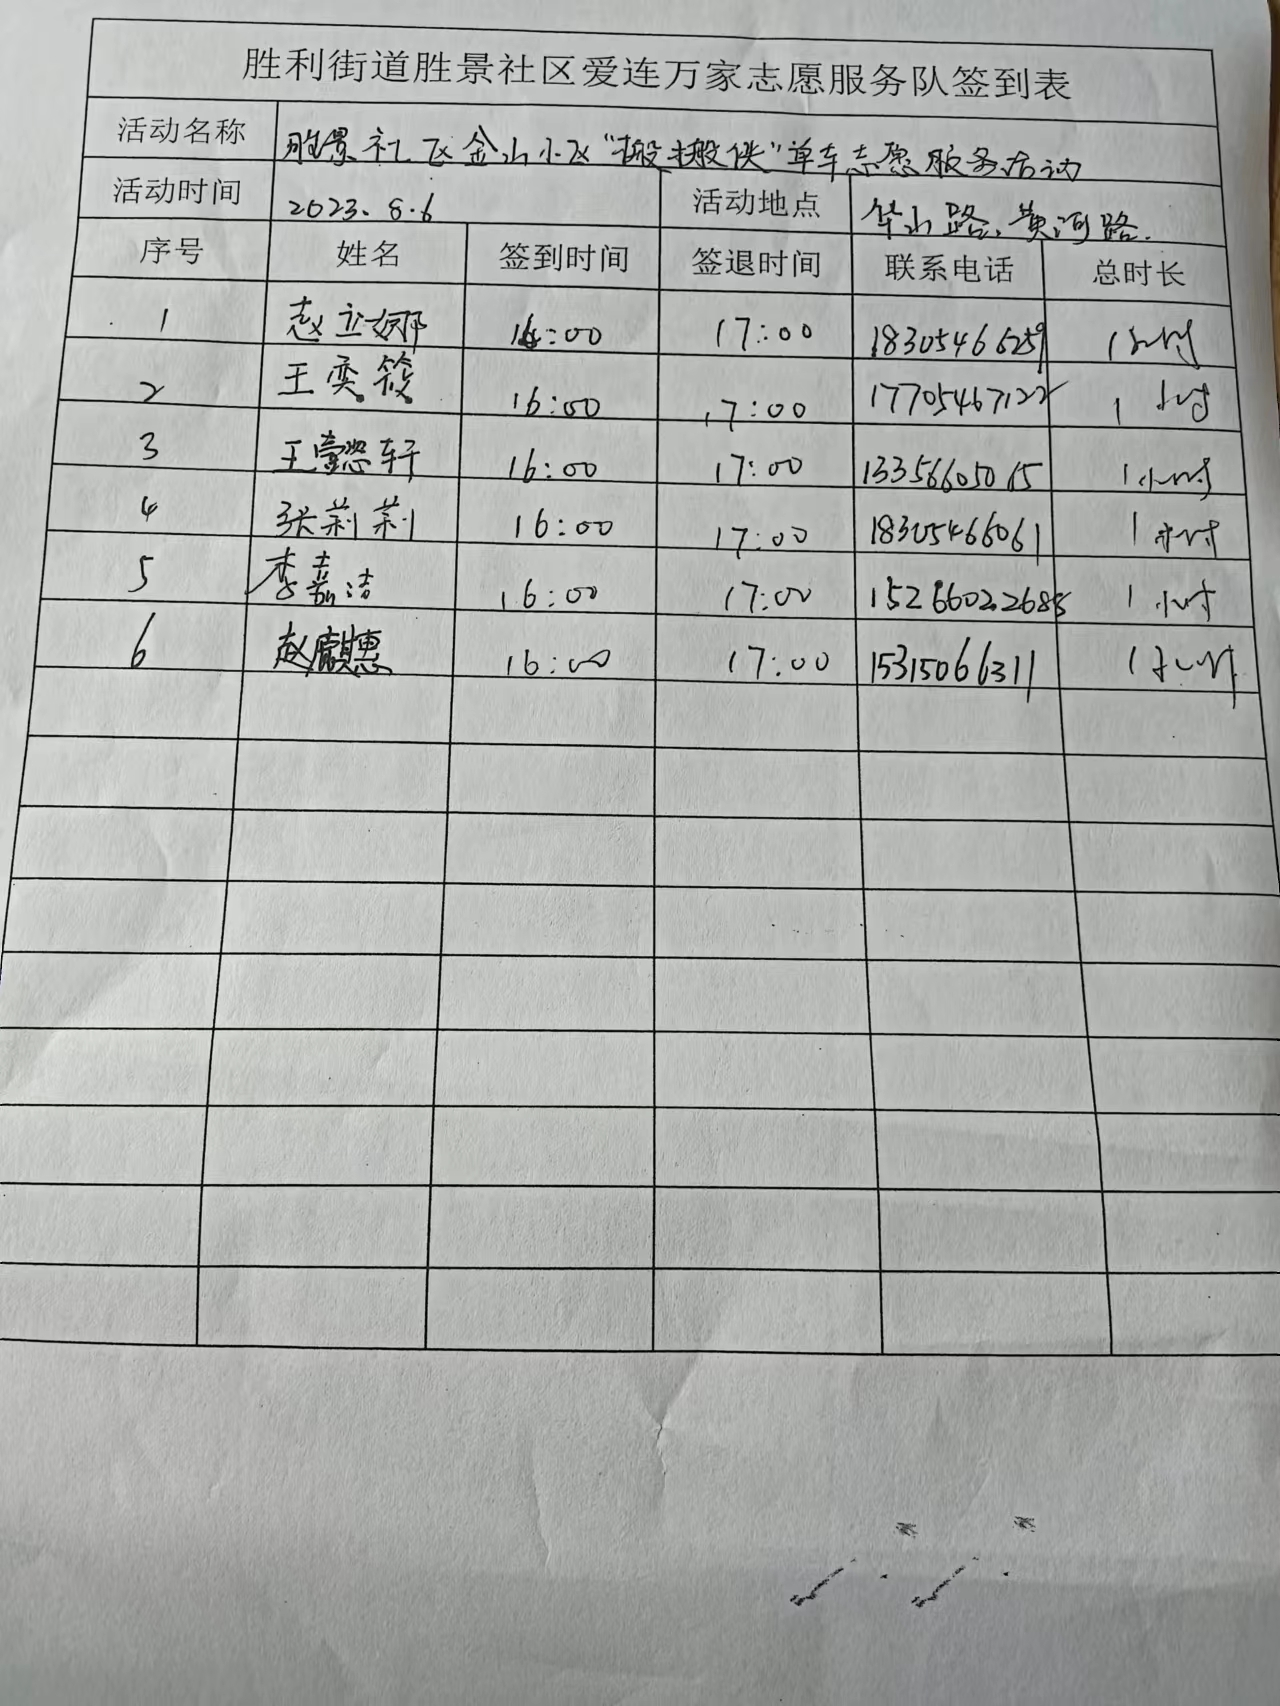 胜利街道胜景社区爱连万家志愿服务队签到表
活动名称 胜景社区金山小区“搬搬侠”单车志愿服务活动
活动时间 2023.8.6 活动地点 华山路、黄河路.
序号 姓名 签到时间 签退时间 联系电话 总时长
1 赵立娜 16:00 17:00 18305466259 1小时
2 王奕筱 16:00 17:00 17705467122 1小时
3 王懿轩 16:00 17:00 13356605015 1小时
4 张莉莉 16:00 17:00 18305466061 1小时
5 李嘉洁 16:00 17:00 15266022685 1小时
6 赵麒惠 16:00 17:00 15315066311 1小时